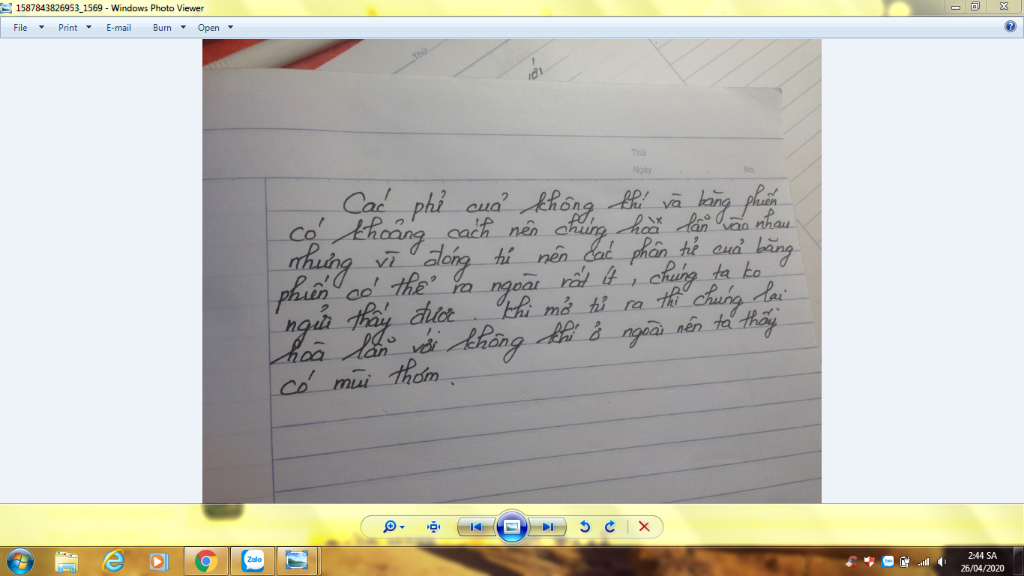 1587843826953_1569 - Windows Photo Viewer
File Print E-mail Burn Open
Thứ
Thứ
Ngày No.
Các phỉ cuả không khí và băng phiến
có khoảng cách nên chúng hoà lẫn vào nhau
nhưng vì đóng tủ nên các phân tử cuả băng
phiến có thể ra ngoài rất ít, chúng ta ko
ngửi thấy được. Khi mở tủ ra thì chúng lại
hoà lẫn với không khí ở ngoài nên ta thấy
có mùi thơm.
Zalo
2:44 SA
26/04/2020